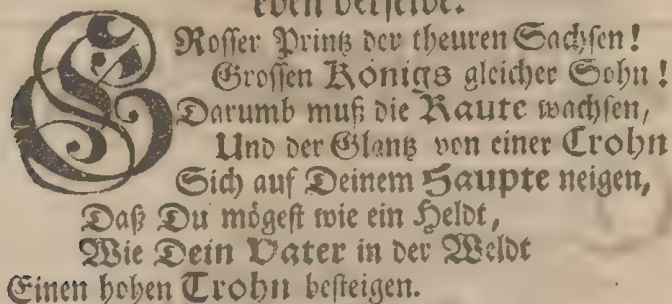 eben derselbe.
GRosser Printz der theuren Sachsen!
Grossen Königs gleicher Sohn!
Darumb muß die Raute wachsen,
Und der Glantz von einer Crohn
Sich auf Deinem Haupte neigen,
Daß Du mögest wie ein Heldt,
Wie Dein Vater in der Weldt
Einen hohen Trohn besteigen.